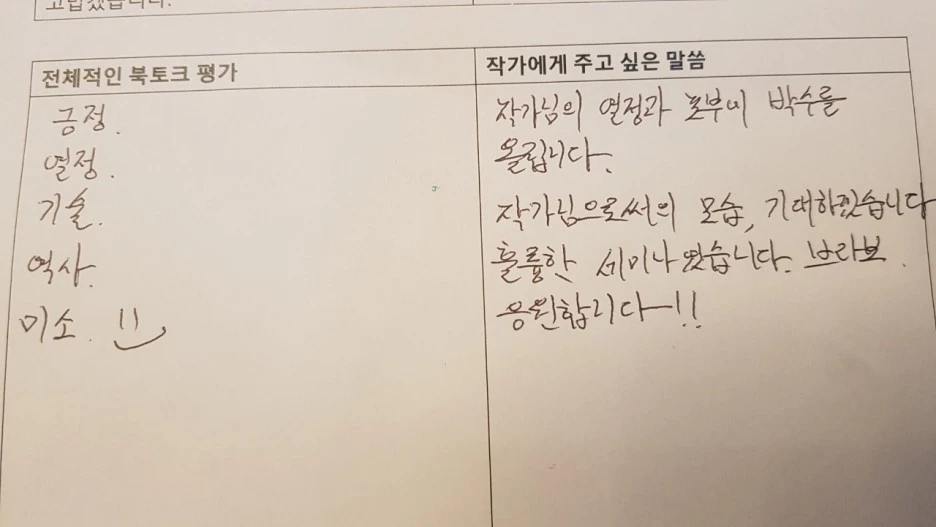 고맙겠습니다.
전체적인 북토크 평가
긍정.
열정.
기술.
역사.
미소.
작가에게 주고 싶은 말씀
작가님의 열정과 포부에 박수를
올립니다.
작가님으로써의 모습, 기대하겠습니다
훌륭한 세미나였습니다. 브라보.
응원합니다~!!